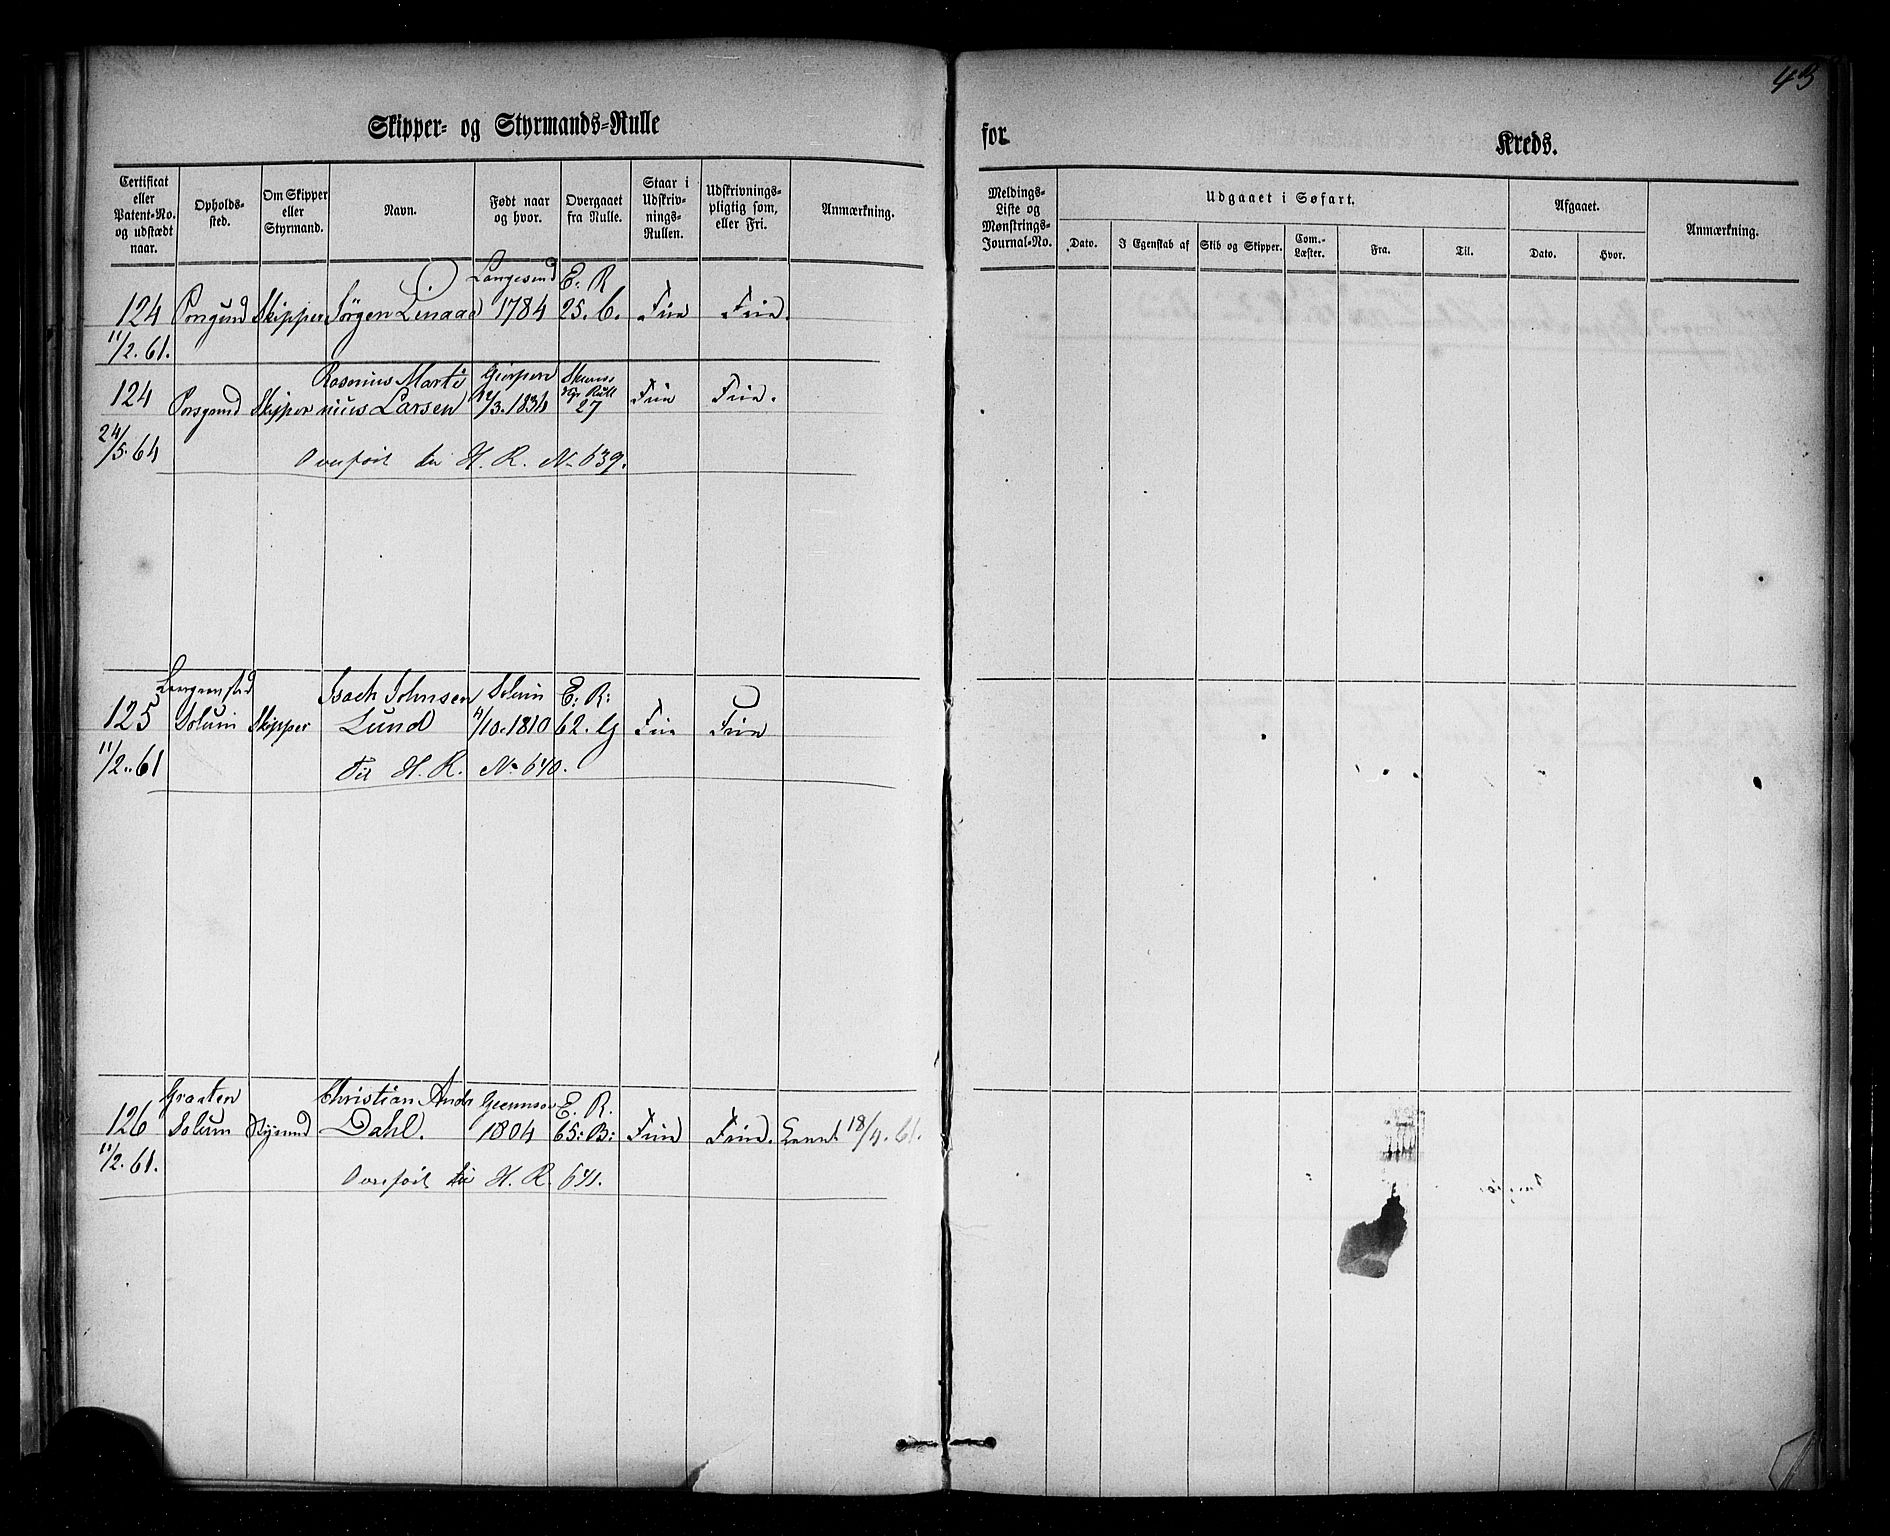 43
Skipper- og Styrmands-Rulle for Kreds.
Certificat eller Patent-No. og udstædt naar.
Opholds-sted.
Om Skipper eller Styrmand.
Navn.
Født naar og hvor.
Overgaaet fra Rulle.
Staar i Udskriv-nings-Rullen.
Udskrivnings-pligtig som, eller Fri.
Anmærkning.
Meldings-Liste og Mønstrings-Journal-No.
Udgaaet i Søfart.
Dato.
I Egenskab af
Skib og Skipper.
Com.-Læster.
Fra.
Til.
Afgaaet.
Dato.
Hvor.
Anmærkning.
Langesund E. R
124 Porsgund Skipper Jørgen Linaae 1784 25. C. Frie Frie.
11/2. 61.
Rasmus Marti Gierpen Skiens
124 Porsgrund Skipper nius Larsen 12/3. 1834 27 Frie Frie.
24/5. 64
Overført til H. R. No 639.
Isach Johnsen Solum E: R:
125 Solum Skipper Lund 4/10. 1810 62. G Frie Frie
11/2. 61
Til H. R. No 640.
Graaten Christian Andr E. R.
126 Solum Stymd Dahl. 1804 65: B: Frie Frie. 18/4. 61.
11/2. 61.
Overført til H. R. 641.